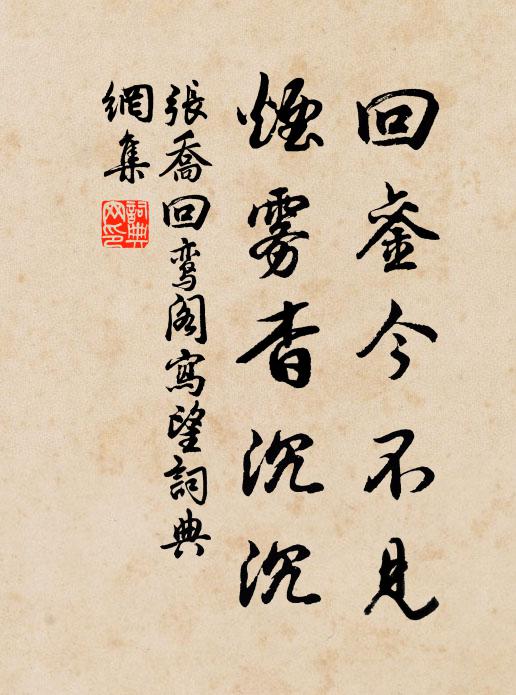 回銮今不見
煙雾杳沉沉
張喬回鸾阁寫望詞典
網集
詞典网印